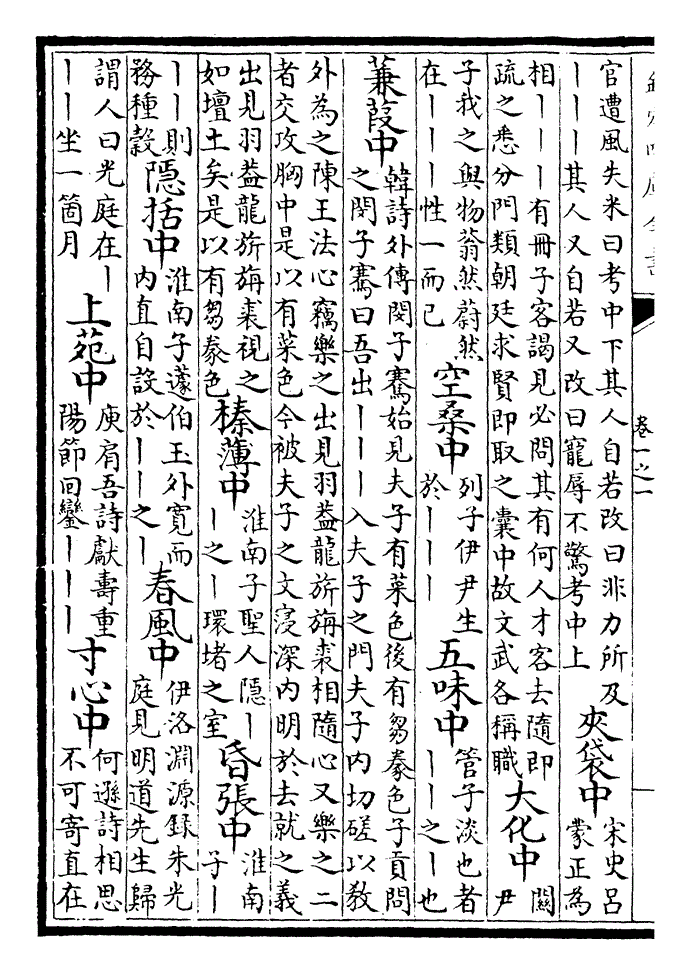 欽定四庫全書
卷一之一
官遭風失米曰考中下其人自若改曰非力所及
｜｜｜其人又自若又改曰寵辱不驚考中上
夾袋中
宋史呂
蒙正為
相｜｜｜有冊子客謁見必問其有何人才客去隨即
疏之悉分門類朝廷求賢即取之囊中故文武各稱職
大化中
關
尹
子我之與物蓊然蔚然
在｜｜｜性一而已
空桑中
列子伊尹生
於｜｜｜
五味中
管子淡也者
｜｜之｜也
蒹葭中
韓詩外傳閔子騫始見夫子有菜色後有芻豢色子貢問
之閔子騫曰吾出｜｜｜入夫子之門夫子內切磋以教
外為之陳王法心竊樂之出見羽葢龍旂旃裘相隨心又樂之二
者交攻胸中是以有菜色今被夫子之文寖深內明於去就之義
出見羽葢龍旂旃裘視之
如壇土矣是以有芻豢色
榛薄中
淮南子聖人隱｜
｜之｜環堵之室
昏張中
淮南
子｜
｜｜則
務種穀
隱括中
淮南子蘧伯玉外寛而
內直自設於｜｜之｜
春風中
伊洛淵源錄朱光
庭見明道先生歸
謂人曰光庭在｜
｜｜坐一箇月
上苑中
庾肩吾詩獻壽重
陽節回鑾｜｜｜
寸心中
何遜詩相思
不可寄直在